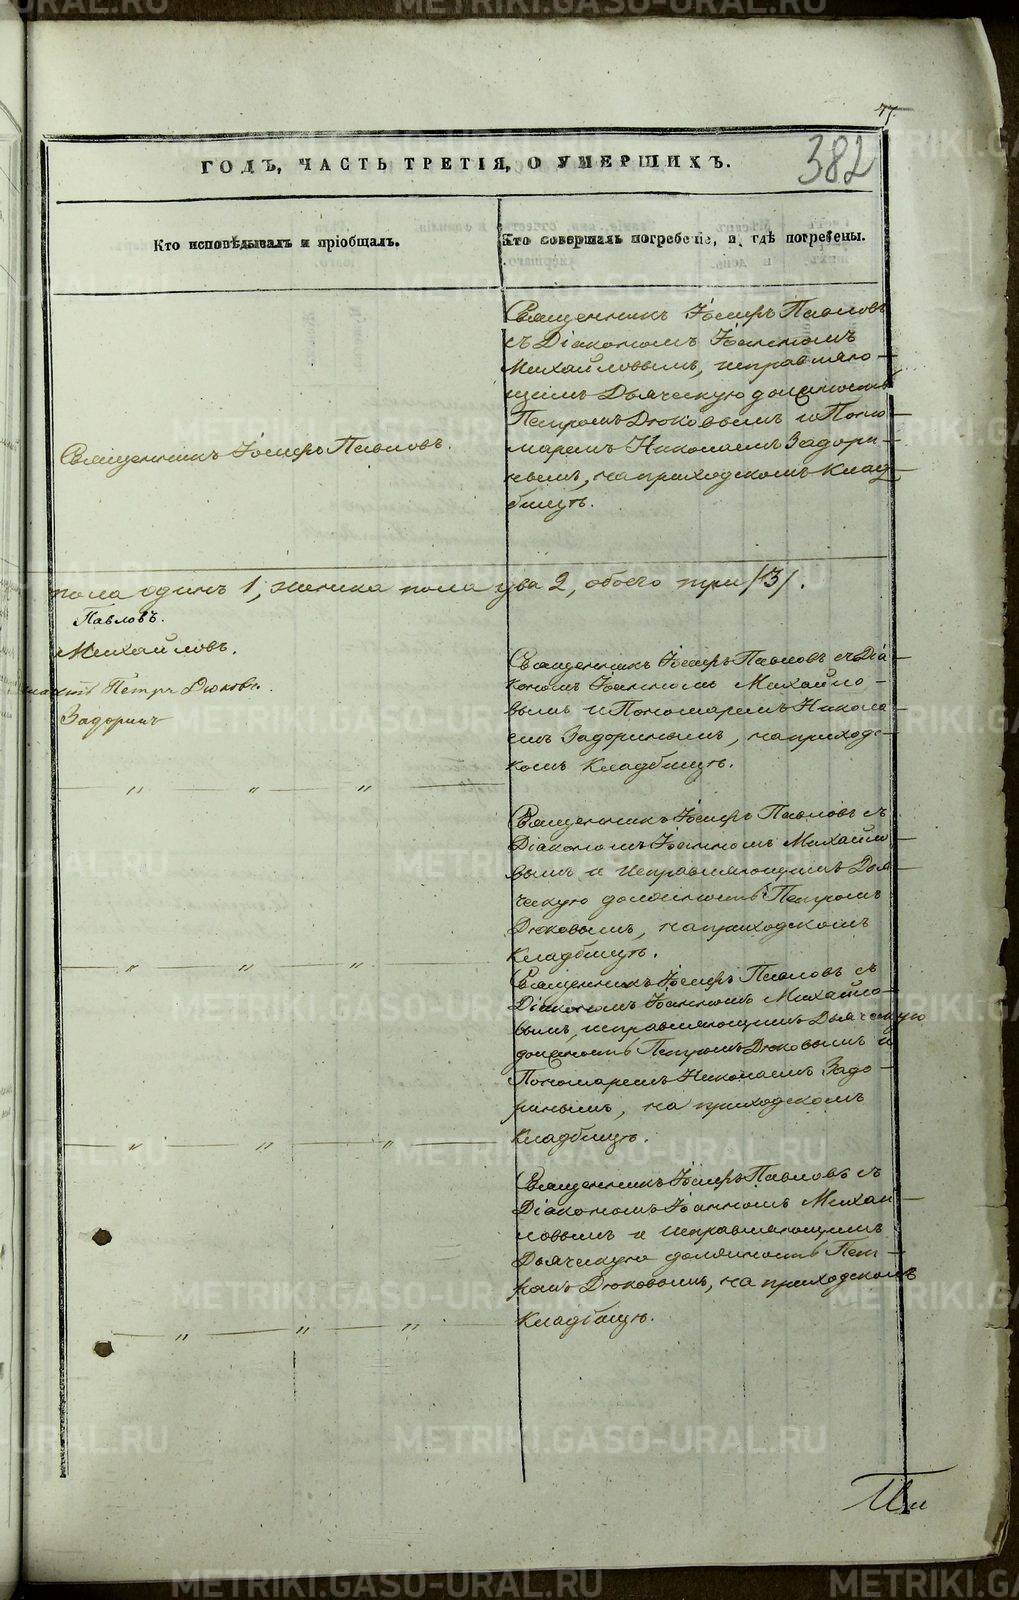 77
382
ГОДЪ, ЧАСТЬ ТРЕТІЯ, О УМЕРШИХЪ.
Кто исповѣдывалъ и пріобщалъ.
Кто совершалъ погребеніе, и гдѣ погребены.
Священникъ Іосифъ Павловъ.
Священникъ Іосифъ Павловъ
съ Діакономъ Іоанномъ
Михайловымъ, исправляю-
щимъ Дьяческую должность
Петромъ Дюковымъ и Поно-
маремъ Николаемъ Задори-
нымъ, на приходскомъ клад-
бищѣ.
пола одинъ 1, женска пола два 2, обоего три /3/.
Павловъ.
Михайловъ.
Петръ Дюковъ.
Задоринъ
Священникъ Іосифъ Павловъ съ Діа-
кономъ Іоанномъ Михайло-
вымъ и Пономаремъ Никола-
емъ Задоринымъ, на приходс-
комъ Кладбищѣ.
" " "
Священникъ Іосифъ Павловъ съ
Діакономъ Іоанномъ Михайло-
вымъ и исправляющимъ Дья-
ческую должность Петромъ
Дюковымъ, на приходскомъ
Кладбищѣ.
" " "
Священникъ Іосифъ Павловъ съ
Діакономъ Іоанномъ Михайло-
вымъ, исправляющимъ Дьяческую
должность Петромъ Дюковымъ и
Пономаремъ Николаемъ Задо-
ринымъ, на приходскомъ
Кладбищѣ.
" " "
Священникъ Іосифъ Павловъ съ
Діакономъ Іоанномъ Михай-
ловымъ и исправляющимъ
Дьяческую должность Пет-
ромъ Дюковымъ, на приходскомъ
Кладбищѣ.
" " "
METRIKI.GASO-URAL.RU